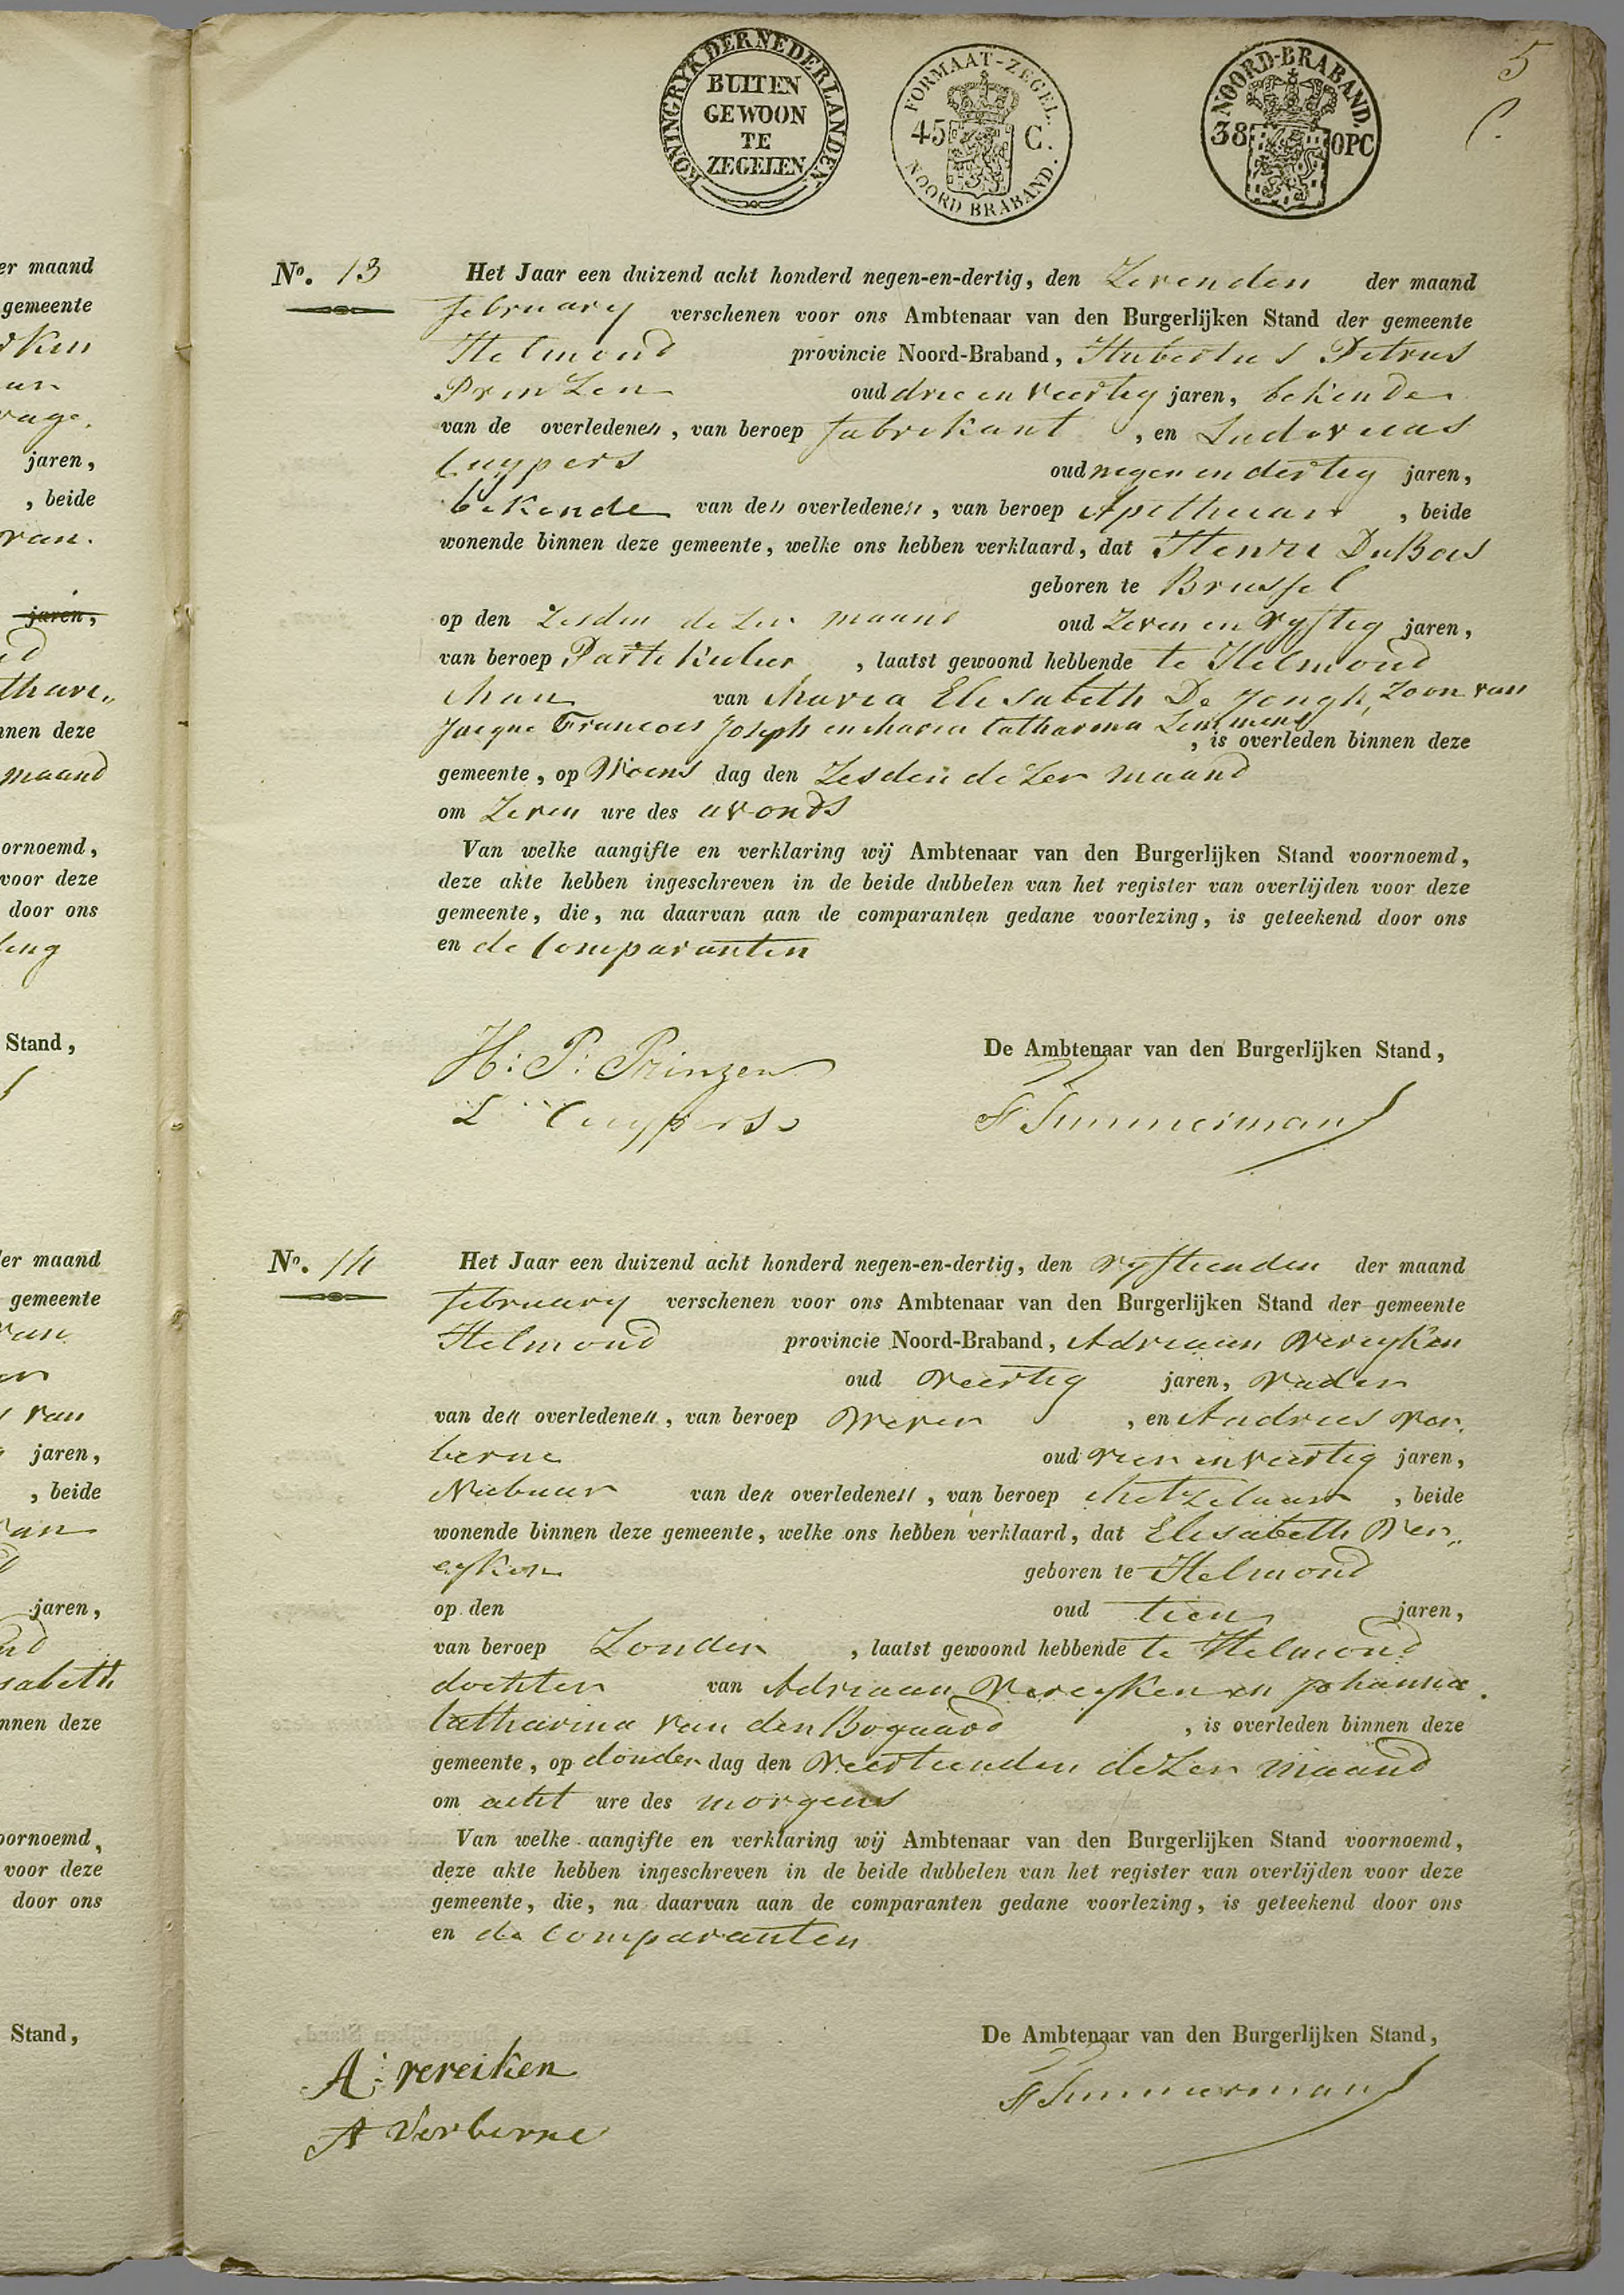 5
C.
KONINGRYK DER NEDERLANDEN.
BUITEN
GEWOON
TE
ZEGELEN
FORMAAT-ZEGEL.
45 C.
NOORD BRABAND.
NOORD-BRABAND.
38 OPC
er maand
gemeente
jaren,
, beide
van.
jaren,
nnen deze
maand
ornoemd,
voor deze
door ons
Stand,
No. 13 Het Jaar een duizend acht honderd negen-en-dertig, den Zevenden der maand
february verschenen voor ons Ambtenaar van den Burgerlijken Stand der gemeente
Helmond provincie Noord-Braband, Hubertus Petrus
Prinzen oud drie en veertig jaren, bekende
van de overledenen, van beroep fabrikant, en Ludovicus
Cuypers oud negen en dertig jaren,
bekende van den overledenen, van beroep Apothecar, beide
wonende binnen deze gemeente, welke ons hebben verklaard, dat Henri DuBois
geboren te Brussel
op den Zesden dezer maand oud Zeven en vyftig jaren,
van beroep Partikulier, laatst gewoond hebbende te Helmond
Man van Maria Elisabeth De Jongh, Zoon van
Jacque Francois Joseph en Maria Catharina Lemmens
, is overleden binnen deze
gemeente, op Woens dag den Zesden dezer maand
om Zeven ure des avonds
Van welke aangifte en verklaring wij Ambtenaar van den Burgerlijken Stand voornoemd,
deze akte hebben ingeschreven in de beide dubbelen van het register van overlijden voor deze
gemeente, die, na daarvan aan de comparanten gedane voorlezing, is geteekend door ons
en de Comparanten
De Ambtenaar van den Burgerlijken Stand,
H: P: Prinzen
L Cuypers
er maand
gemeente
van
van
jaren,
, beide
jaren,
nnen deze
oornoemd,
voor deze
door ons
Stand,
No. 14 Het Jaar een duizend acht honderd negen-en-dertig, den vyftienden der maand
february verschenen voor ons Ambtenaar van den Burgerlijken Stand der gemeente
Helmond provincie Noord-Braband, Adriaan Vereyken
oud Veertig jaren, Vader
van den overledenen, van beroep Wever, en Andries Ver,
berne oud vier en veertig jaren,
Nabuur van den overledenen, van beroep Metzelaar, beide
wonende binnen deze gemeente, welke ons hebben verklaard, dat Elisabeth Ver,,
eyken geboren te Helmond
op den oud tien jaren,
van beroep Zonder, laatst gewoond hebbende te Helmond
dochter van Adriaan Vereyken en Johanna
Catharina van den Bogaard, is overleden binnen deze
gemeente, op donder dag den Veertienden dezer maand
om acht ure des morgens
Van welke aangifte en verklaring wij Ambtenaar van den Burgerlijken Stand voornoemd,
deze akte hebben ingeschreven in de beide dubbelen van het register van overlijden voor deze
gemeente, die, na daarvan aan de comparanten gedane voorlezing, is geteekend door ons
en de Comparanten
De Ambtenaar van den Burgerlijken Stand,
A: vereiken
A Verberne